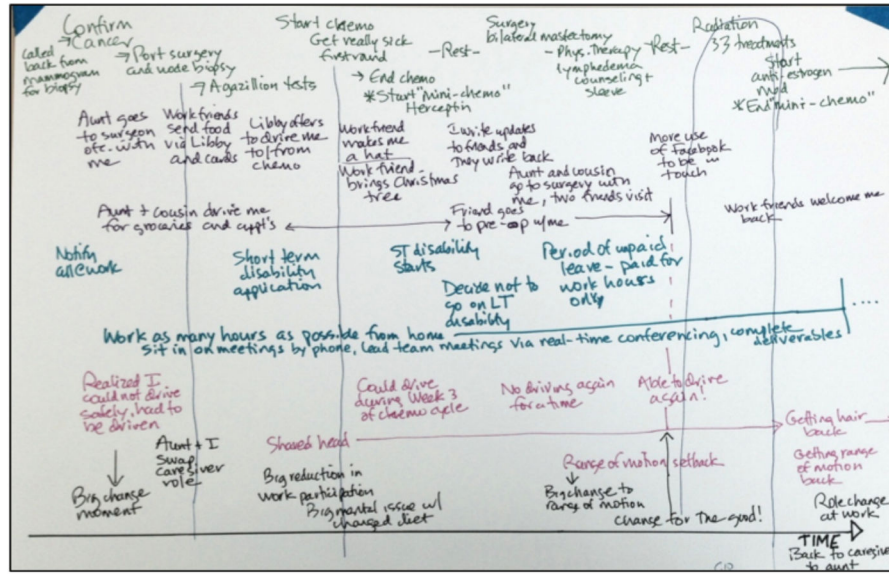 Confirm
→ Cancer
called
back from
mammogram
for biopsy
→ Port surgery
and node biopsy
→ A gazillion tests
Start chemo
Get really sick
first round
→ End chemo
*Start "mini-chemo"
Herceptin
-Rest-
Surgery
bilateral mastectomy
- Phys. Therapy
lymphedema
counseling +
sleeve
-Rest-
Radiation
33 treatments
Start
anti-estrogen
med
*End "mini-chemo"
Aunt goes
to surgeon
ofc. with
me
Work friends
send food
via Libby
and cards
Libby offers
to drive me
to/from
chemo
Work friend
makes me
a hat
Work friend
brings Christmas
tree
I write updates
to friends and
they write back
Aunt and cousin
go to surgery with
me, two friends visit
More use
of Facebook
to be in
touch
Aunt + cousin drive me
for groceries and appt's
Friend goes
to pre-op w/me
Work friends welcome me
back
Notify
all@work
Short term
disability
application
ST disability
starts
Decide not to
go on LT
disability
Period of unpaid
leave - paid for
work hours
only
....
Work as many hours as possible from home
Sit in on meetings by phone, Lead team meetings via real-time conferencing, complete
deliverables
Realized I
could not drive
safely, had to
be driven
Could drive
during Week 3
of chemo cycle
No driving again
for a time
Able to drive
again!
Big change
moment
Aunt + I
swap
caregiver
role
Shaved head
Getting hair
back
Big reduction in
work participation
Big mental issue w/
changed diet
Range of motion setback
Big change to
range of motion
change for the good!
Getting range
of motion
back
Role change
at work
TIME
Back to caregiver
to aunt